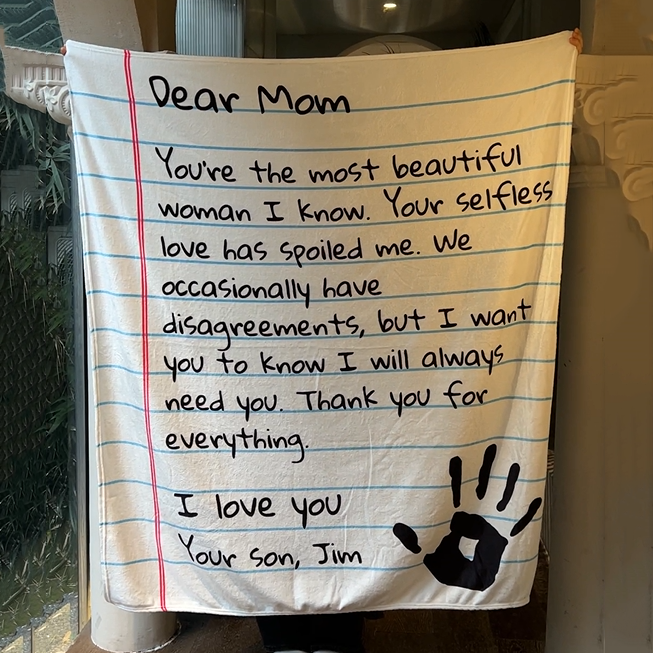 Dear Mom
You're the most beautiful
woman I know. Your selfless
love has spoiled me. We
occasionally have
disagreements, but I want
you to know I will always
need you. Thank you for
everything.
I love you
Your son, Jim